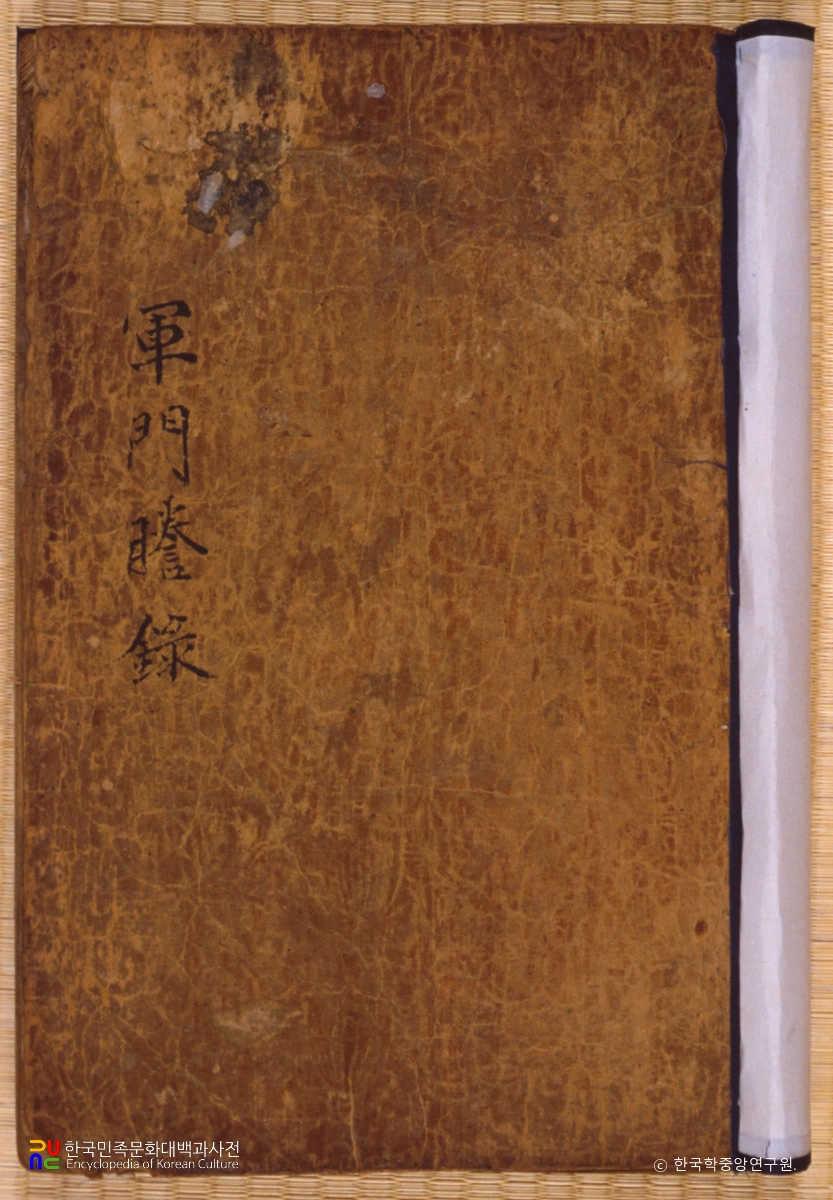 軍門謄錄
한국민족문화대백과사전
Encyclopedia of Korean Culture
© 한국학중앙연구원.